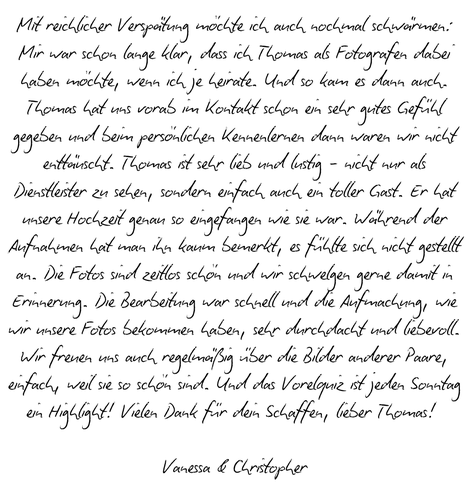 Mit reichlicher Verspätung möchte ich auch nochmal schwärmen:
Mir war schon lange klar, dass ich Thomas als Fotografen dabei
haben möchte, wenn ich je heirate. Und so kam es dann auch.
Thomas hat uns vorab im Kontakt schon ein sehr gutes Gefühl
gegeben und beim persönlichen Kennenlernen dann waren wir nicht
enttäuscht. Thomas ist sehr lieb und lustig - nicht nur als
Dienstleister zu sehen, sondern einfach auch ein toller Gast. Er hat
unsere Hochzeit genau so eingefangen wie sie war. Während der
Aufnahmen hat man ihn kaum bemerkt, es fühlte sich nicht gestellt
an. Die Fotos sind zeitlos schön und wir schwelgen gerne damit in
Erinnerung. Die Bearbeitung war schnell und die Aufmachung, wie
wir unsere Fotos bekommen haben, sehr durchdacht und liebevoll.
Wir freuen uns auch regelmäßig über die Bilder anderer Paare,
einfach, weil sie so schön sind. Und das Vorelquiz ist jeden Sonntag
ein Highlight! Vielen Dank für dein Schaffen, lieber Thomas!
Vanessa & Christopher